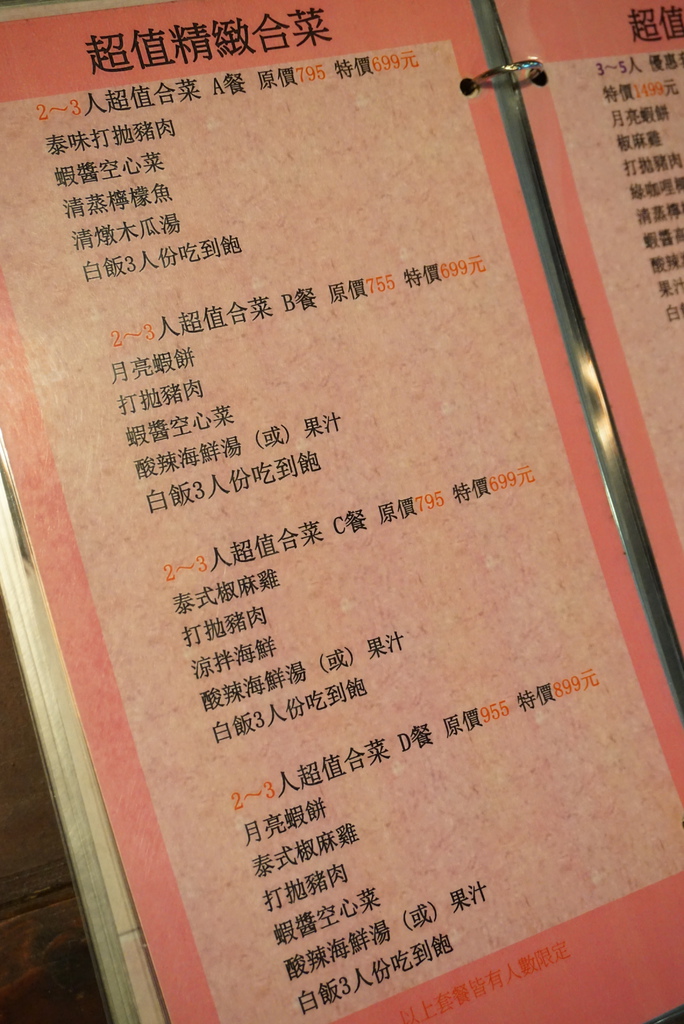 超值精緻合菜
2～3人超值合菜 A餐 原價795 特價699元
泰味打拋豬肉
蝦醬空心菜
清蒸檸檬魚
清燉木瓜湯
白飯3人份吃到飽
2～3人超值合菜 B餐 原價755 特價699元
月亮蝦餅
打拋豬肉
蝦醬空心菜
酸辣海鮮湯 (或) 果汁
白飯3人份吃到飽
2～3人超值合菜 C餐 原價795 特價699元
泰式椒麻雞
打拋豬肉
涼拌海鮮
酸辣海鮮湯 (或) 果汁
白飯3人份吃到飽
2～3人超值合菜 D餐 原價955 特價899元
月亮蝦餅
泰式椒麻雞
打拋豬肉
蝦醬空心菜
酸辣海鮮湯 (或) 果汁
白飯3人份吃到飽
以上套餐皆有人數限定
超值
3～5人 優惠
特價1499元
月亮蝦餅
椒麻雞
打拋豬肉
綠咖哩
清蒸檸
蝦醬高
酸辣
果汁
白飯